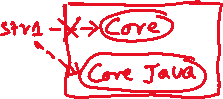 str1 Core
Core Java